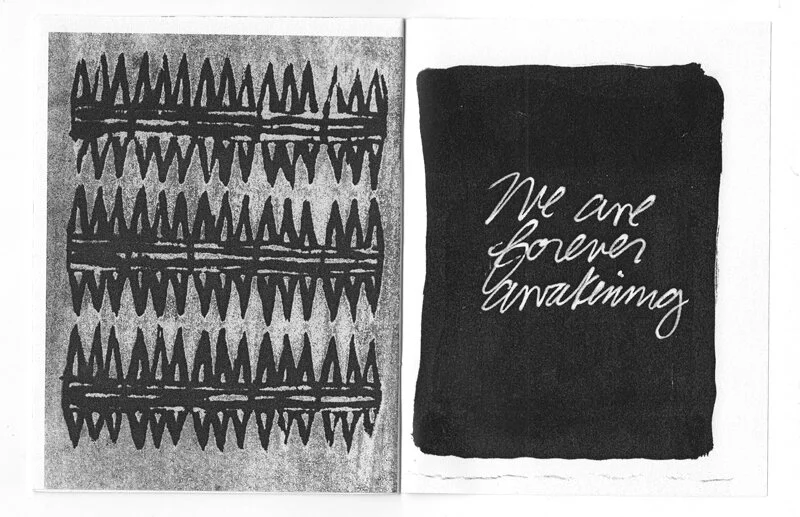 We are
forever
awakening